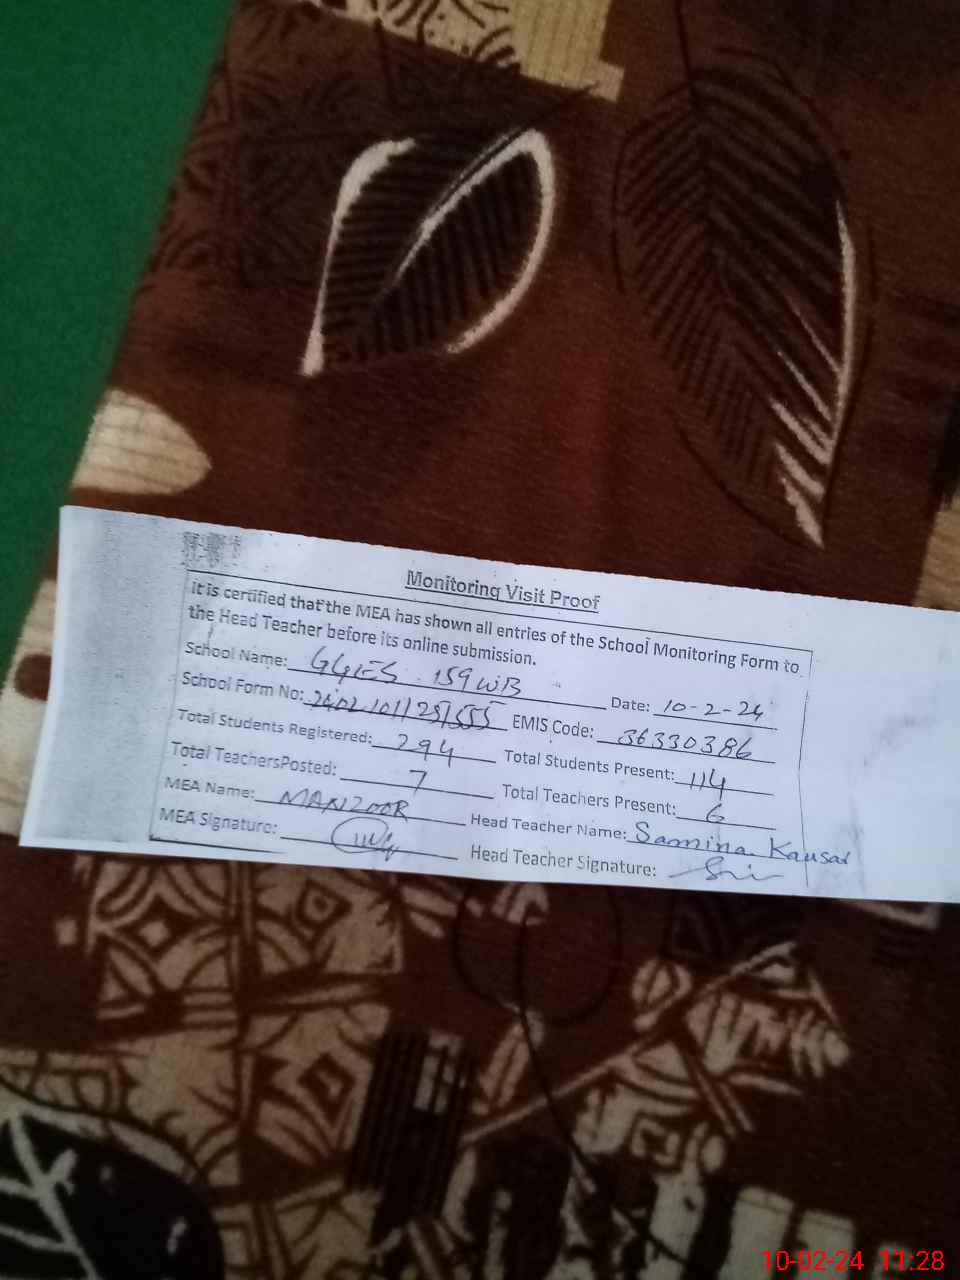 Monitoring Visit Proof
it is certified that the MEA has shown all entries of the School Monitoring Form to
the Head Teacher before its online submission.
School Name: GGES 159WB Date: 10-2-24
School Form No: EMIS Code: 36330386
Total Students Registered: 294 Total Students Present: 114
Total TeachersPosted: 7 Total Teachers Present: 6
MEA Name: MANZOOR Head Teacher Name: Samina Kausar
MEA Signature: Head Teacher Signature:
10-02-24 11:28